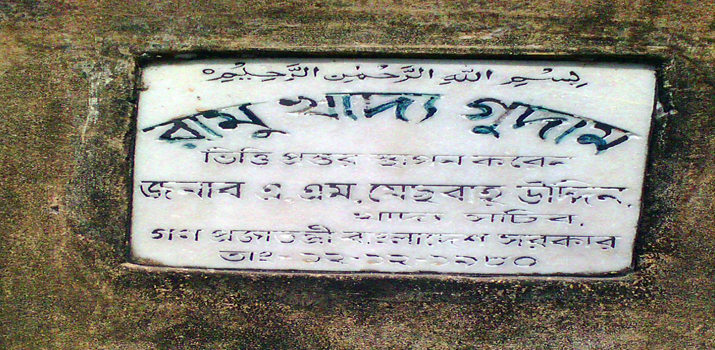 بسم الله الرحمن الرحيم
রামু খাদ্য গুদাম
ভিত্তি প্রস্তর স্থাপন করেন
জনাব এ. এম. মেছবাহ্ উদ্দিন.
খাদ্য সচিব.
গণ প্রজাতন্ত্রী বাংলাদেশ সরকার
তাং- ১২-১২-১৯৮০